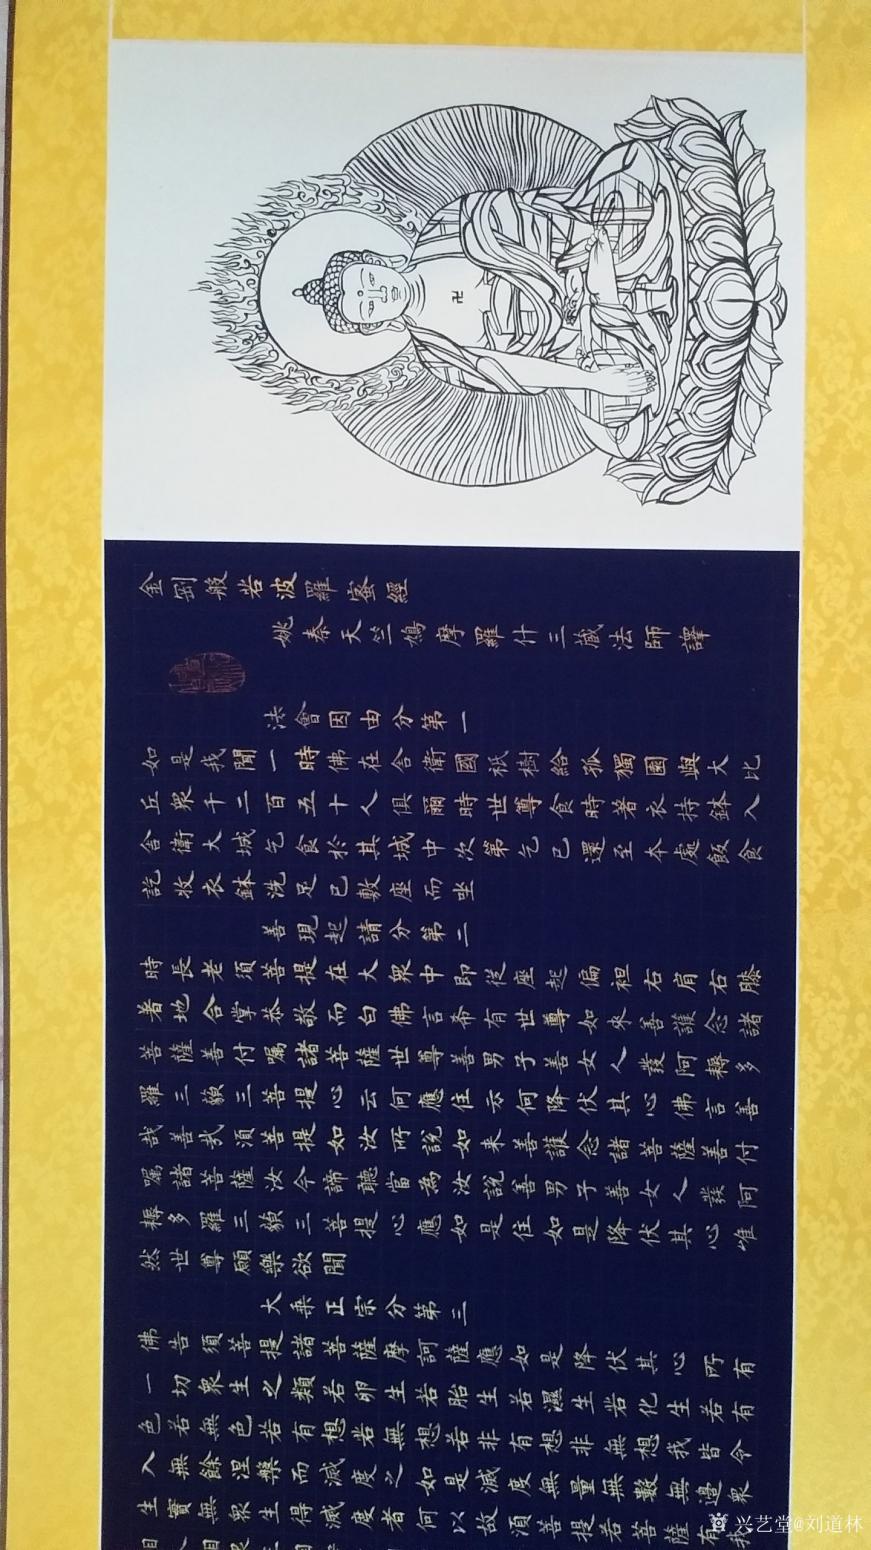 卍
金剛般若波羅蜜經
姚秦天竺鳩摩羅什三藏法師譯
法會因由分第一
如是我聞一時佛在舍衛國祇樹給孤獨園與大比
丘衆千二百五十人俱爾時世尊食時著衣持鉢入
舍衛大城乞食於其城中次第乞已還至本處飯食
訖收衣鉢洗足已敷座而坐
善現起請分第二
時長老須菩提在大衆中即從座起偏袒右肩右膝
著地合掌恭敬而白佛言希有世尊如來善護念諸
菩薩善付囑諸菩薩世尊善男子善女人發阿耨多
羅三藐三菩提心云何應住云何降伏其心佛言善
哉善哉須菩提如汝所說如来善護念諸菩薩善付
囑諸菩薩汝今諦聽當為汝說善男子善女人發阿
耨多羅三藐三菩提心應如是住如是降伏其心唯
然世尊願樂欲聞
大乘正宗分第三
佛告須菩提諸菩薩摩訶薩應如是降伏其心所有
一切衆生之類若卵生若胎生若濕生若化生若有
色若無色若有想若無想若非有想非無想我皆令
入無餘涅槃而滅度之如是滅度無量無數無邊衆
生實無衆生得滅度者何以故須菩提若菩薩有我
兴艺堂@刘道林